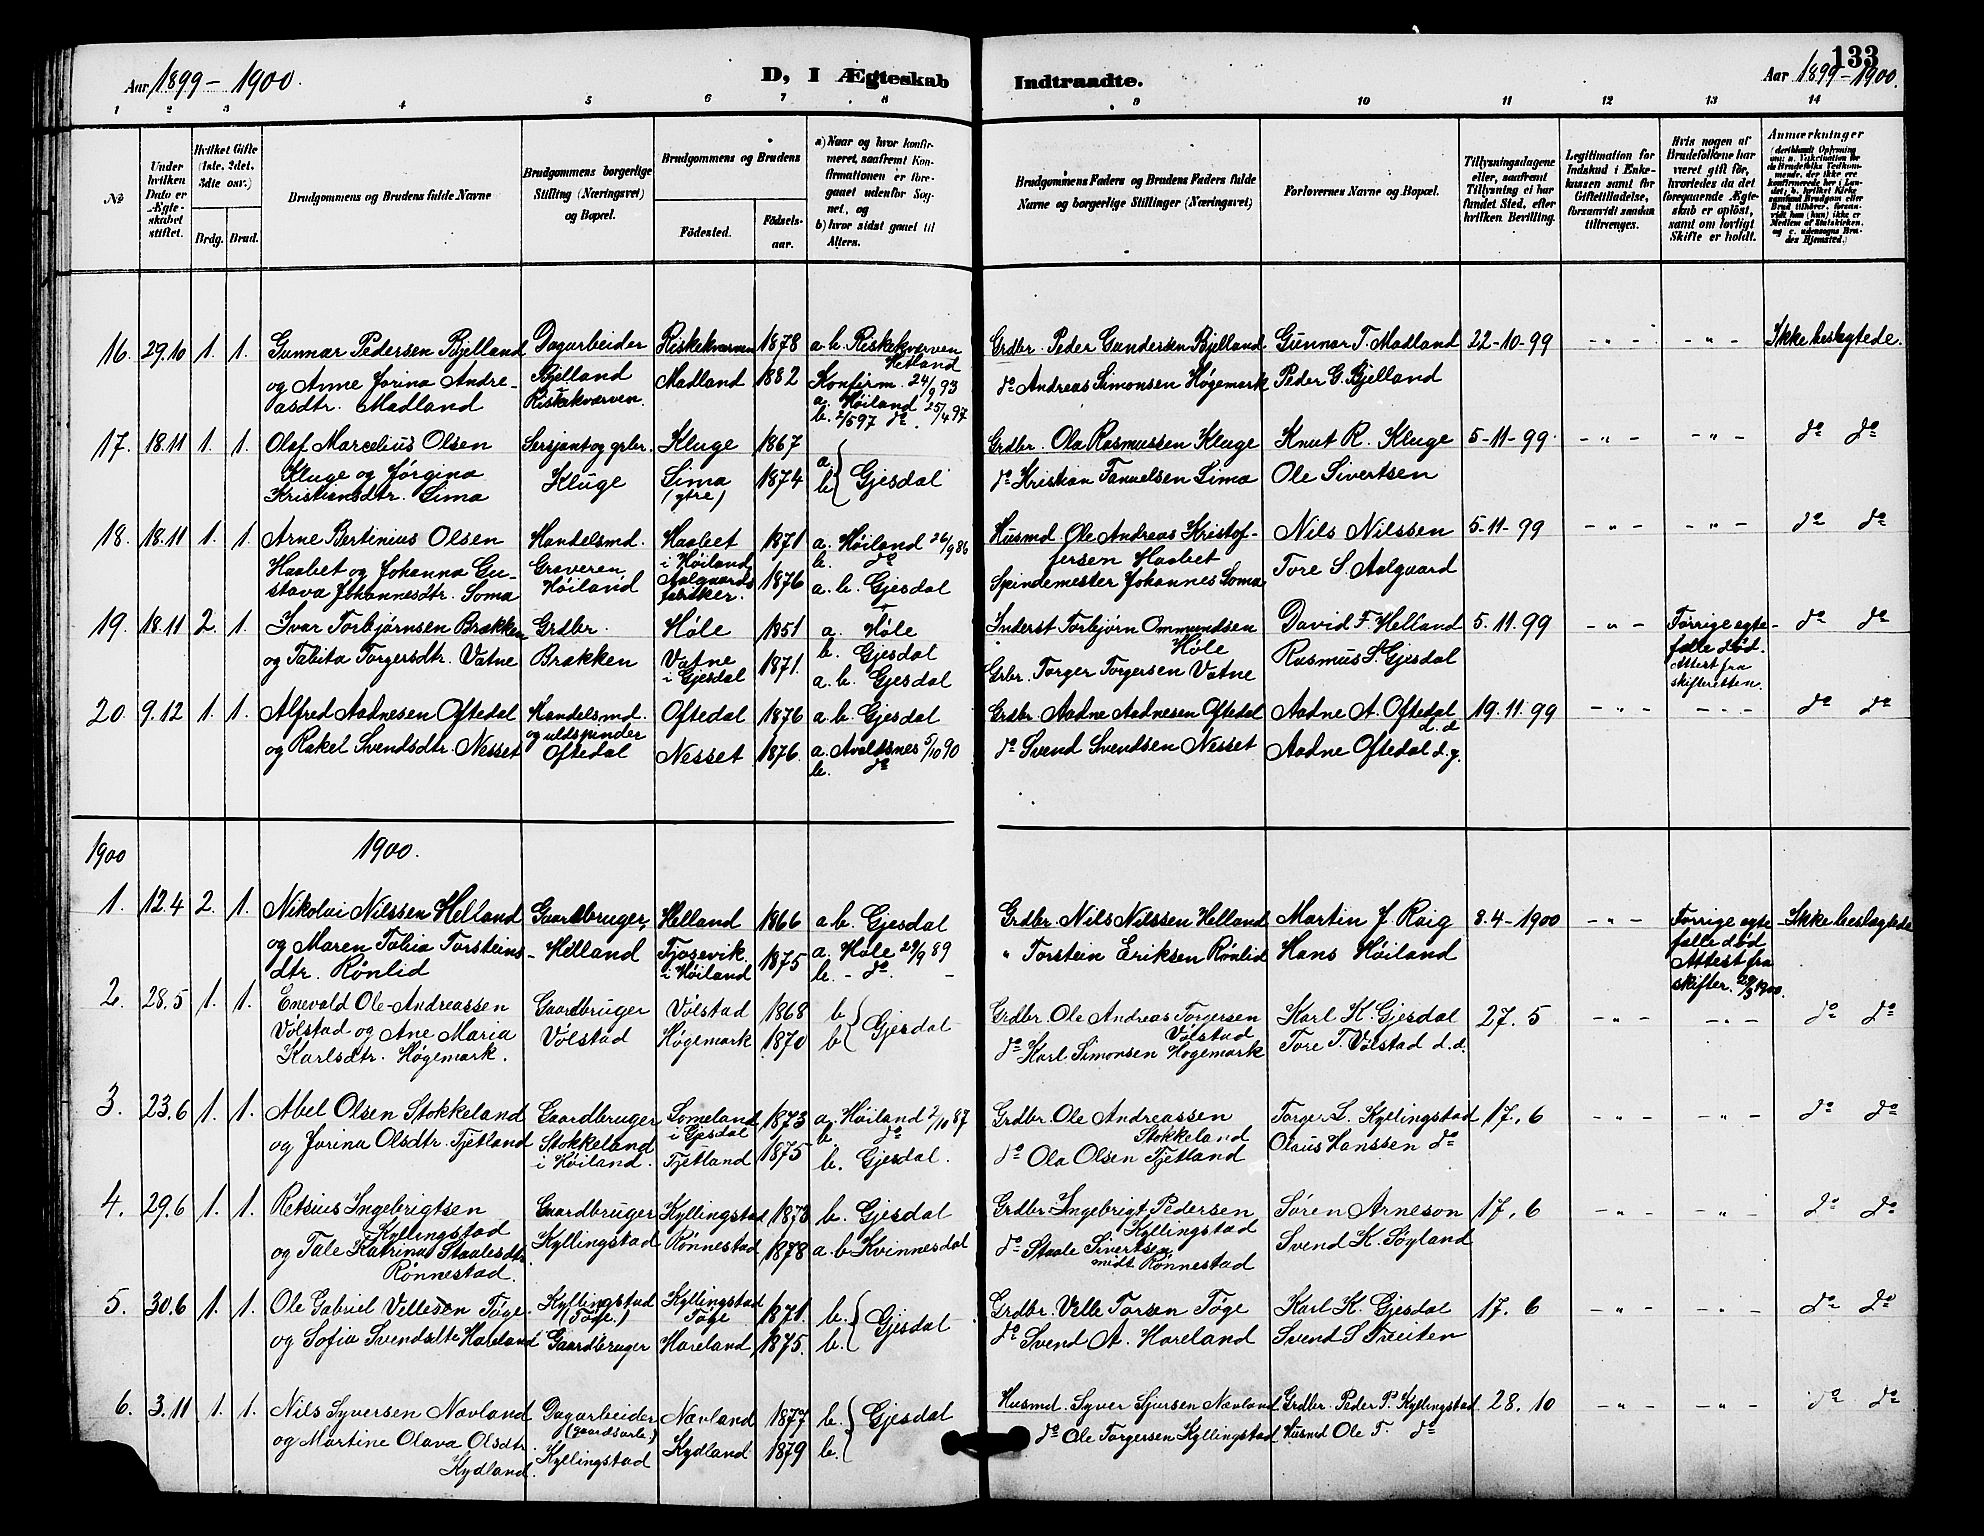 Aar 1899 - 1900.
D, I Ægteskab Indtraadte.
133
Aar 1899 - 1900.
1 2 3 4 5 6 7 8 9 10 11 12 13 14
No
Under hvilken Dato er Ægteskabet stiftet.
Hvilket Gifte (1ste, 2det, 3die osv.)
Brdg. Brud.
Brudgommens og Brudens fulde Navne
Brudgommens borgerlige Stilling (Næringsvei) og Bopæl.
Brudgommens og Brudens
Födested.
Födsels-aar.
a) Naar og hvor konfirmeret, saafremt Konfirmationen er foregaaet udenfor Sognet, og
b) hvor sidst gaaet til Alters.
Brudgommens Faders og Brudens Faders fulde Navne og borgerlige Stillinger (Næringsvei)
Forlovernes Navne og Bopæl.
Tillysningsdagene eller, saafremt Tillysning ei har fundet Sted, efter hvilken Bevilling.
Legitimation for Indskud i Enkekassen samt for Giftetilladelse, forsaavidt saadan tiltrænges.
Hvis nogen af Brudefolkene har været gift för, hvorledes da det foregaaende Ægteskab er oplöst, samt om lovligt Skifte er holdt.
Anmærkninger
16. 29.10 1. 1. Gunnar Pedersen Bjelland Dagarbeider Riskekværven 1878 a. b. Riskekværven Hetland Grdbr. Peder Gundersen Bjelland Gunnar T. Madland 22-10-99 - " - - " - Ikke beslegtede.
og Anne Jorina Andre- Bjelland Madland 1882 Konfirm. 24/9 93 do Andreas Simonsen Høgemark Peder G. Bjelland
asdtr. Madland Riskekværven. a. Høiland 25/4 97
b. 2/5 97 do.
17. 18.11 1. 1. Olaf Marcelius Olsen Sersjant og grbr. Kluge 1867 a. Grdbr. Ola Rasmussen Kluge Knut R. Kluge 5-11-99 - " - - " - do do
Kluge og Jørgina Kluge Lima 1874 b. Gjesdal do Kristian Tanuelsen Lima Ole Sivertsen
Kristiansdtr. Lima (ytre)
18. 18.11 1. 1. Arne Bertinius Olsen Handelsmd. Haabet 1871 a. Høiland 26/9 86 Husmd Ole Andreas Kristof- Nils Nilssen 5-11-99 - " - - " - do do
Haabet og Johanna Gu- Graveren i Høiland b. do fersen Haabet
stava Johannesdtr. Soma Høiland Aalgaards fabriker. 1876 a. b. Gjesdal Spindemester Johannes Soma Tore S. Aalgaard
19. 18.11 2. 1. Ivar Torbjørnsen Brækken Grdbr. Høle 1851 a. Høle Inderst Torbjørn Ommundsen Høle David F. Helland 5.11.99 - " - Forrige egte- do do
og Tabita Torgersdtr. Vatne Brækken Vatne i Gjesdal 1871. b. Gjesdal Rasmus S. Gjesdal fælle død.
a. b. Gjesdal Grbr. Torger Torgersen Vatne Attest fra skifteretten.
20. 9.12 1. 1. Alfred Aadnesen Oftedal Handelsmd. Oftedal 1876 a. b. Gjesdal Grdbr. Aadne Aadnesen Oftedal Aadne A. Oftedal d. d 19.11.99 - " - - " - do do
og Rakel Svendsdtr. Nesset og uldspinder Oftedal Nesset 1876. a. Avaldsnes 5/10 90 do Svend Svendsen Nesset Aadne Oftedal d. y.
b. do
1900 1900.
1. 12.4 2. 1. Nikolai Nilssen Helland Gaardbruger, Helland 1866 a. b. Gjesdal Grdbr. Nils Nilssen Helland Martin J. Raig 8.4-1900 - " - Forrige egte- Ikke beslegtede
og Maren Tobia Torsteins- Helland Tjosevik 1875 a. Høle 29/9 89 " Torstein Eriksen Rønlid Hans Høiland fælle død
dtr. Rønlid i Høiland b. - do. - Attest fra
skifter. 29/3 1900.
2. 28.5 1. 1. Enevald Ole Andreassen Gaardbruger Vølstad 1868 b. Grdbr. Ole Andreas Torgersen Karl K. Gjesdal 27.5 - " - - " - do do
Vølstad og Ane Maria Vølstad Høgemark 1870 b. Gjesdal Vølstad
Karlsdtr. Høgemark. do Karl Simonsen Høgemark Tore T. Vølstad d. d.
3. 23.6 1. 1. Abel Olsen Stokkeland Gaardbruger Someland 1873 a. Høiland 2/10 87 Grdbr. Ole Andreassen Torger L. Kyllingstad 17.6 - " - - " - do do
og Jorina Olsdtr. Tjetland Stokkeland i Gjesdal b. do Stokkeland Olaus Hanssen do
i Høiland. Tjetland 1875 b. Gjesdal. do Ola Olsen Tjetland
4. 29.6 1. 1. Retsius Ingebrigtsen Gaardbruger Kyllingstad 1873 b. Gjesdal Grdbr Ingebrigt Pedersen Søren Arneson 17.6 - " - - " - do do
Kyllingstad Kyllingstad Kyllingstad
og Tale Katrina Staalesdtr Rønnestad 1878 a. b Kvinnesdal do Staale Sivertsen Svend K. Søyland
Rønnestad. midt Rønnestad
5. 30.6 1. 1. Ole Gabriel Vellesen Tøge. Kyllingstad Kyllingstad 1871. b. Grdbr. Velle Torsen Tøge Karl K. Gjesdal 17.6 - " - - " - do do
og Sofia Svendsdtr Hareland (Tøge.) Tøge Gjesdal
Gaardbruger Hareland 1875. b. do Svend A. Hareland Svend S Træiten
6. 3.11 1. 1. Nils Syversen Navland Dagarbeider Navland 1877 b. Gjesdal Husmd. Syver Sjursen Navland Grdbr. Peder P. Kyllingstad 28.10 - " - - " - do do
og Martine Olava Olsdtr. (gaardsarb.) Kydland 1879 b. do Ole Torgersen Kyllingstad Husmd Ole T. do
Kydland. Kyllingstad